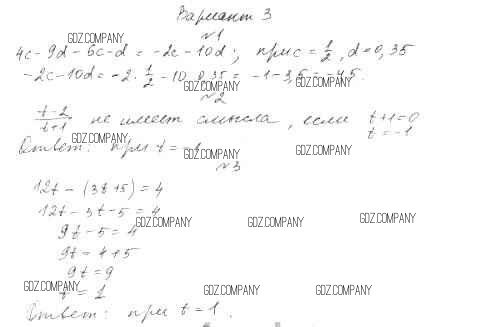 Вариант 3
№1
4c - 9d - 6c - d = -2c - 10d; при c = 1/2, d = 0,35
-2c - 10d = -2 · 1/2 - 10 · 0,35 = -1 - 3,5 = -4,5.
№2
(t-2)/(t+1) не имеет смысла, если t+1=0
t = -1
Ответ: при t = -1
№3
12t - (3t+5) = 4
12t - 3t - 5 = 4
9t - 5 = 4
9t = 4+5
9t = 9
t = 1
Ответ: при t = 1.
GDZ.COMPANY
GDZ.COMPANY
GDZ.COMPANY
GDZ.COMPANY
GDZ.COMPANY
GDZ.COMPANY
GDZ.COMPANY
GDZ.COMPANY
GDZ.COMPANY
GDZ.COMPANY
GDZ.COMPANY
GDZ.COMPANY